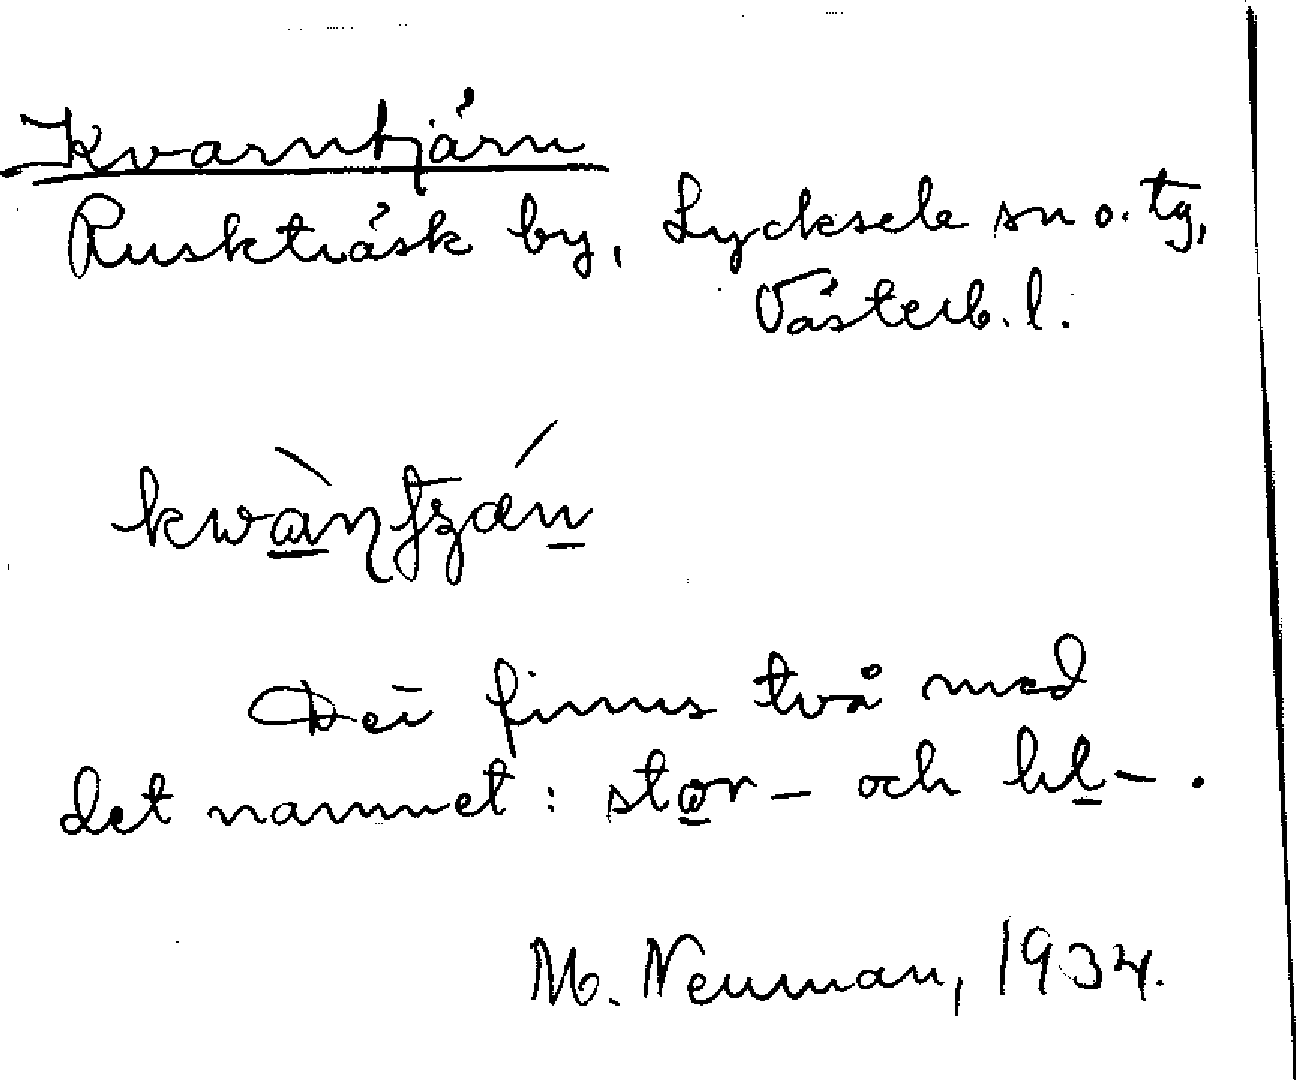 Kvarntjärn
Ruskträsk by, Lycksele sn o. tg,
Västerb. l.
Det finns två med
det namnet: stor- och lil-.
M. Neuman, 1934.